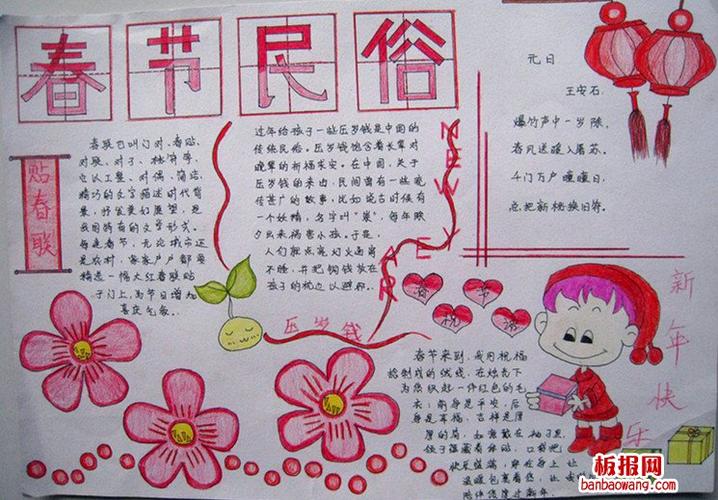 春节民俗
贴春联
春联也叫门对、春贴、
对联、对子、桃符等,
它以工整、对偶、简洁、
精巧的文字描述时代背
景,抒发美好愿望,是
我国特有的文学形式。
每逢春节,无论城市还
是农村,家家户户都要
精选一幅大红春联贴
于门上,为节日增加
喜庆气氛。
过年给孩子一些压岁钱是中国的
传统民俗。压岁钱饱含着长辈对
晚辈的祈福求安。在中国,关于
压岁钱的来由,民间曾有一些流
传甚广的故事,比如说古时候有
一个妖精,名字叫"祟",每年除
夕出来祸害小孩。于是,
人们就点亮灯火通宵
不睡,并把铜钱放在
孩子的枕边以避邪。
压岁钱
NEW
YEAR
元日
王安石
爆竹声中一岁除,
春风送暖入屠苏。
千门万户曈曈日,
总把新桃换旧符。
春 节
祝 词
春节来到,我用祝福
绘制成的优线,在烛光下
为您织起一件红色的毛
衣:前身是平安,后
身是幸福,吉祥是厚
厚的肩,如意戴在袖子里
领子蕴藏着体贴,口袋把
快乐盛满,穿在身上 让
温暖包裹着您,让
新年快乐
板报网
banbaowang.com